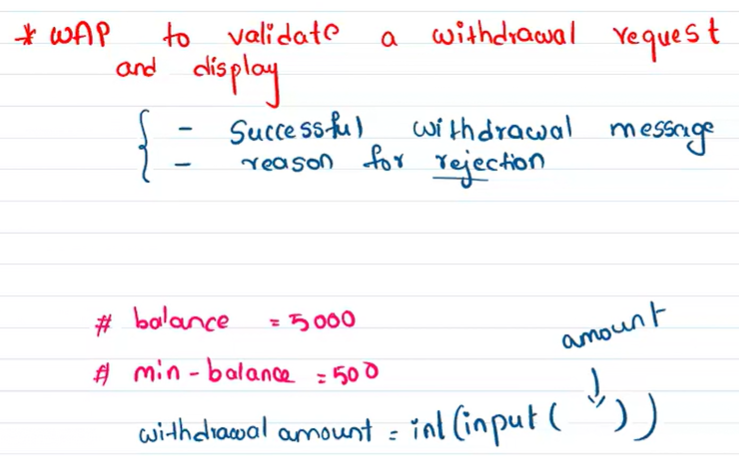 * WAP to validate a withdrawal request
and display
- Successful withdrawal message
- reason for rejection
# balance = 5000
# min-balance = 500
amount
withdrawal amount = int(input(" "))